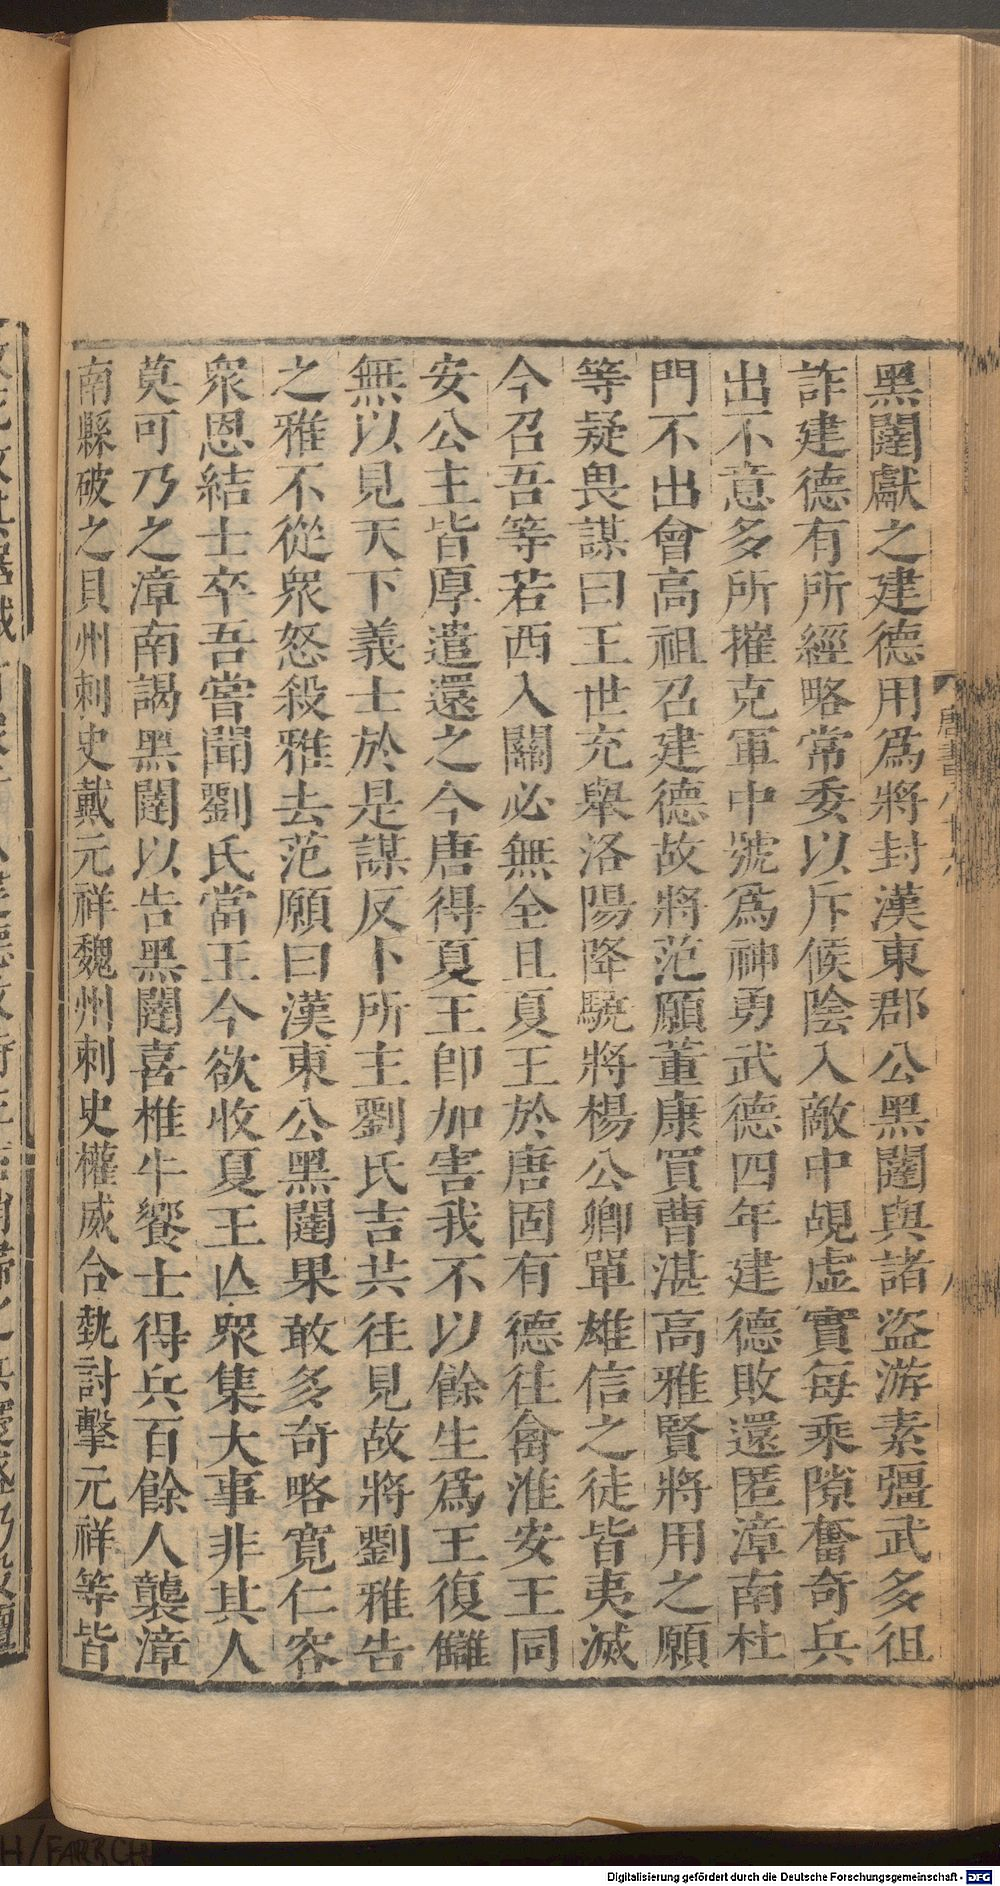 黑闥獻之建德用爲將封漢東郡公黑闥與諸盜游素彊武多狙
詐建德有所經略常委以斥候陰入敵中覘虛實每乘隙奮奇兵
出不意多所摧克軍中號爲神勇武德四年建德敗還匿漳南杜
門不出會高祖召建德故將范願董康買曹湛高雅賢將用之願
等疑畏謀曰王世充舉洛陽降驍將楊公卿單雄信之徒皆夷滅
今召吾等若西入關必無全且夏王於唐固有德往禽淮安王同
安公主皆厚遣還之今唐得夏王卽加害我不以餘生爲王復讎
無以見天下義士於是謀反卜所主劉氏吉共往見故將劉雅告
之雅不從衆怒殺雅去范願曰漢東公黑闥果敢多奇略寬仁容
衆恩結士卒吾嘗聞劉氏當王今欲收夏王亾衆集大事非其人
莫可乃之漳南謁黑闥以告黑闥喜椎牛饗士得兵百餘人襲漳
南縣破之貝州刺史戴元祥魏州刺史權威合埶討擊元祥等皆
唐書八十六
Digitalisierung gefördert durch die Deutsche Forschungsgemeinschaft - DFG